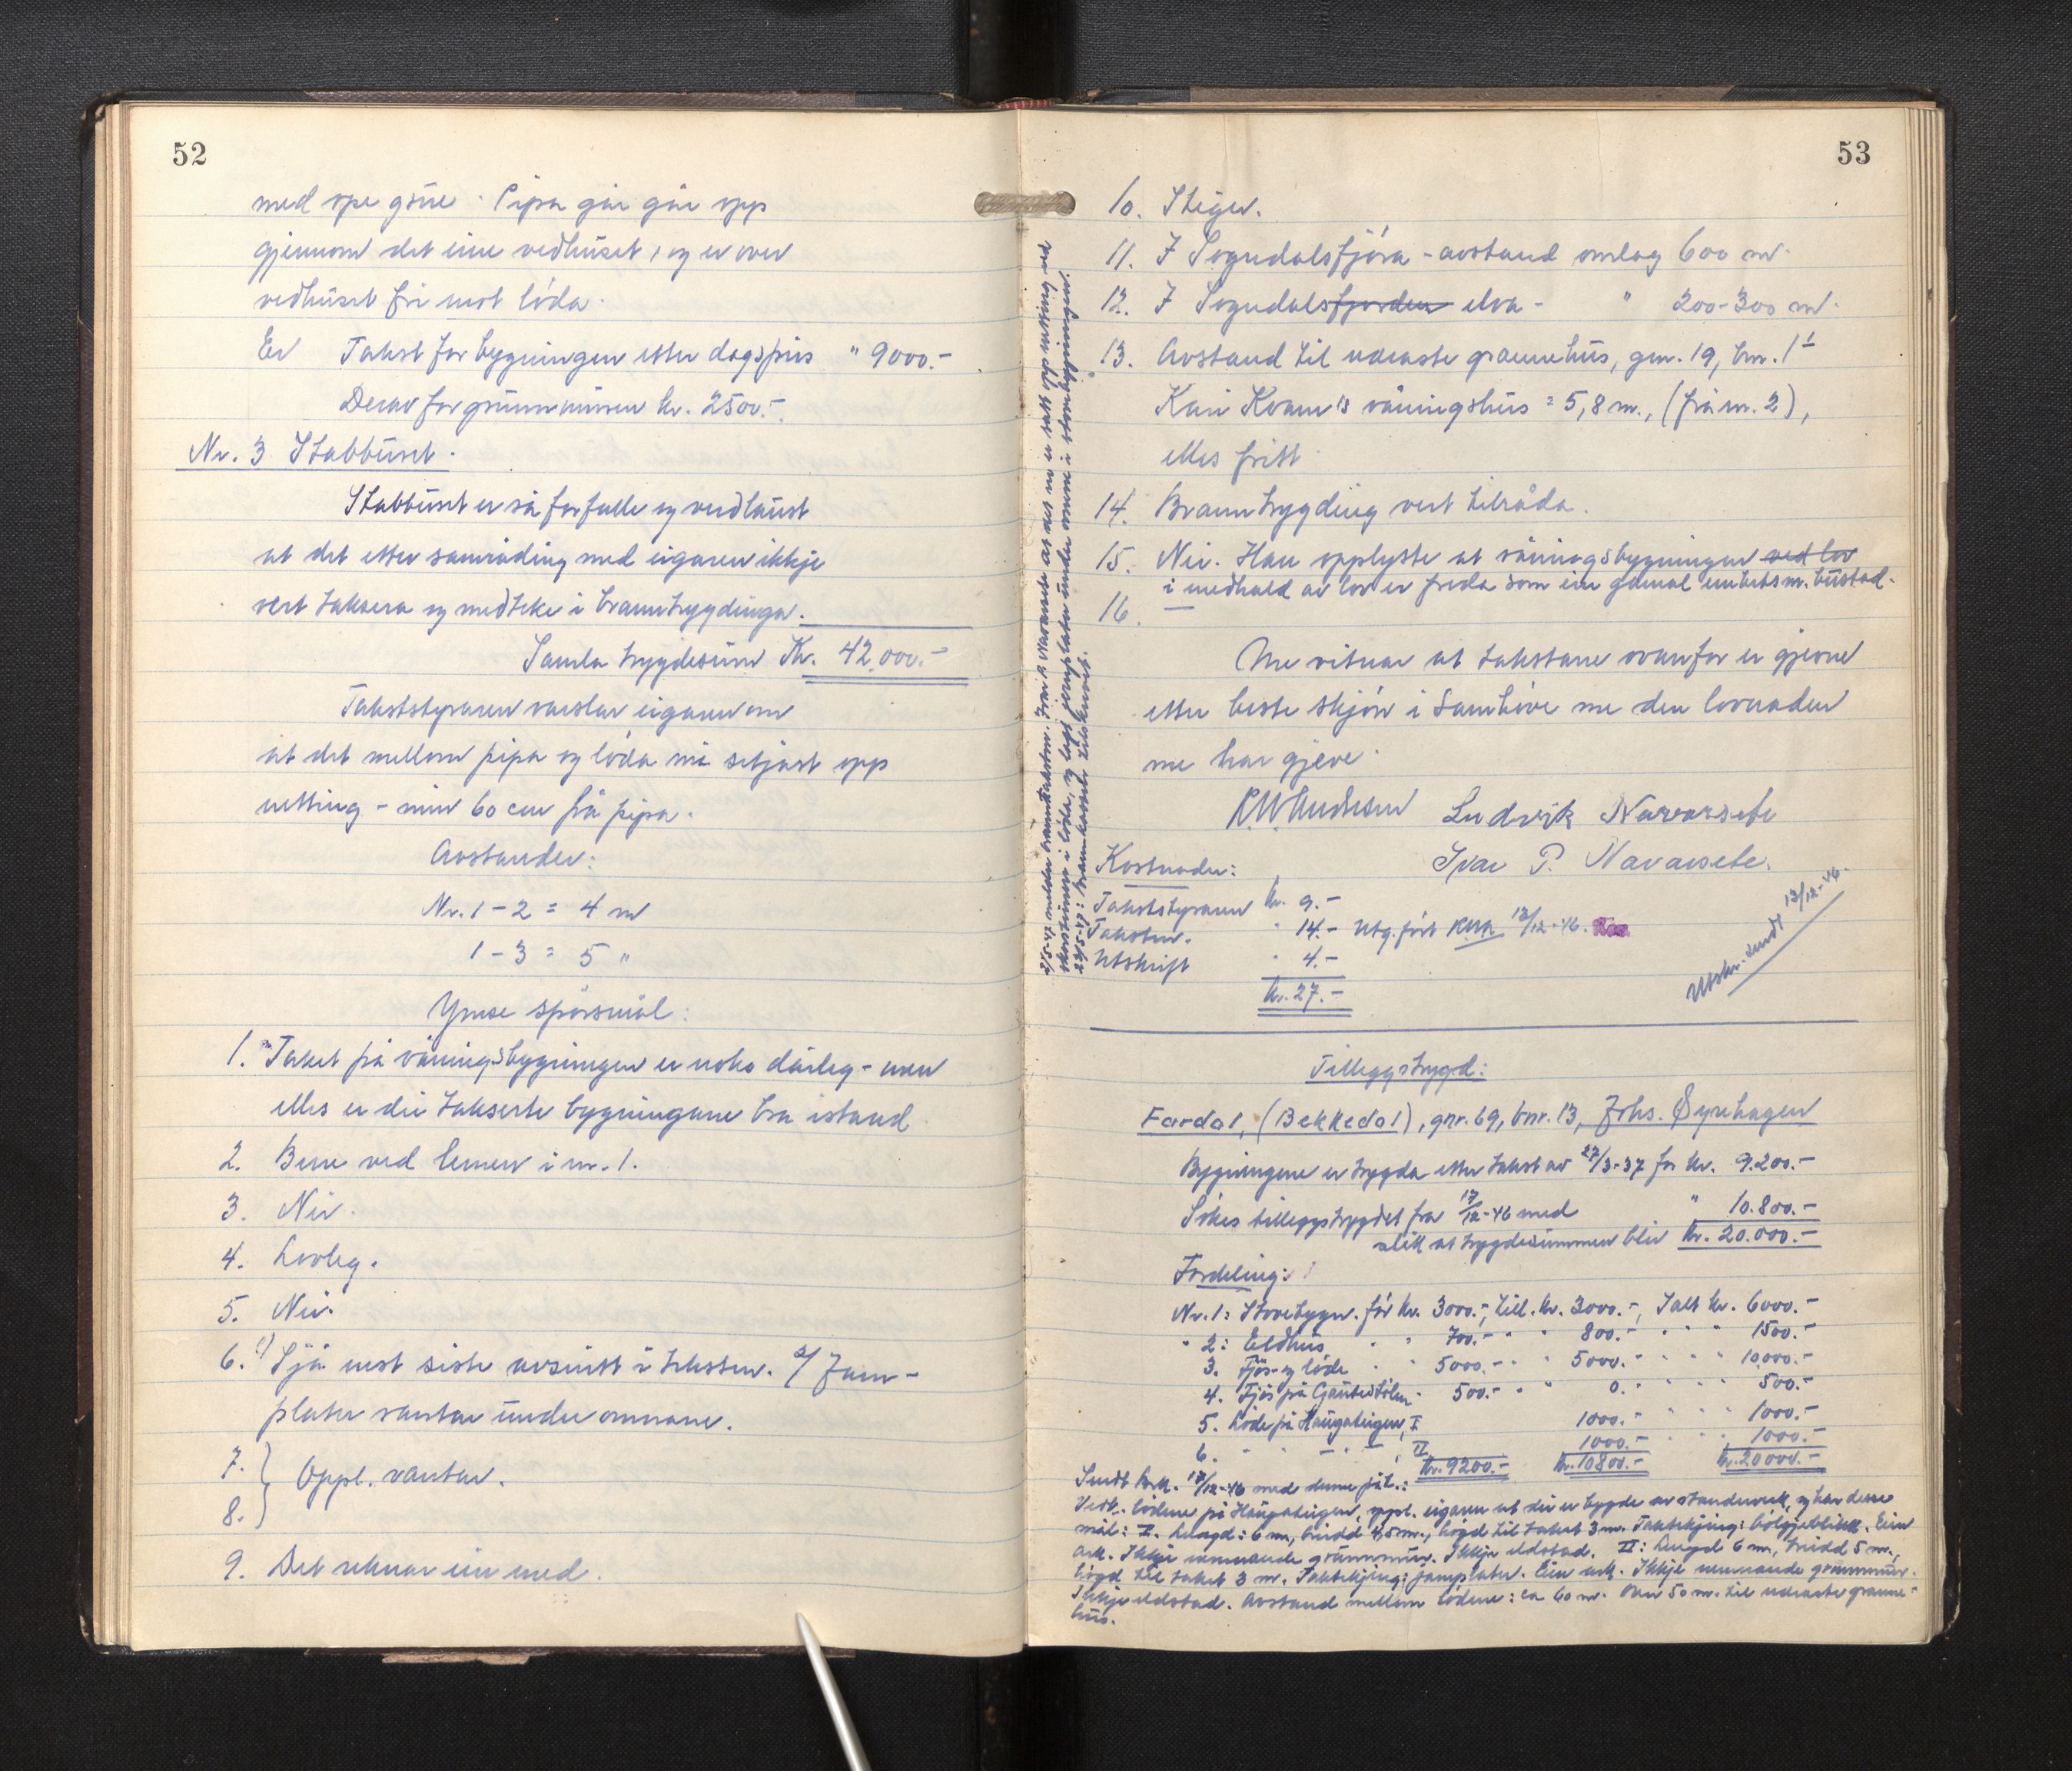 52
med ope grue. Pipa går går opp
gjennom det eine vedhuset, og er over
vedhuset fri mot löda.
Ev Takst for bygningen etter dagspris " 9000.-
Derav for grunnmuren kr. 2500.-
Nr. 3 Stabburet.
Stabburet er så forfalle og verdlaust
at det etter samråding med eigaren ikkje
vert taksera og medteke i branntrygdinga.
Samla trygdesum Kr. 42.000.-
Takststyraren varslar eigaren om
at det mellom pipa og löda må setjast opp
netting - min 60 cm frå pipa.
Avstander:
Nr. 1 - 2 = 4 m
1 - 3 = 5 "
Ymse spörsmål:
1. Taket på våningsbygningen er noko dårleg - men
elles er dei takserte bygningane bra istand
2. Berre ved lemen i nr. 1.
3. Nei.
4. Lovleg.
5. Nei.
6. 1) Sjå nest siste avsnitt i teksten. 2/ Jarn-
plater vantar under omnane.
7. } Oppl. vantar.
8. }
9. Det reknar ein med.
53
10. Stigar.
11. I Sogndalsfjöra - avstand omlag 600 m.
12. I Sogndalsfjorden elva - " 200-300 m.
13. Avstand til næraste grannehus, gnr. 19, bnr. 1
Kari Kvam's våningshus = 5,8 m., (frå nr. 2),
elles fritt
14. Branntrygding vert tilråda.
15. Nei. Han opplyste at våningsbygningen ved lov
i medhald av lov er freda som ein gamal embetsm. bustad.
16. —
Me vitnar at takstane ovanfor er gjevne
etter beste skjön i samhöve me den lovnaden
me har gjeve.
Ludvik Navarsete
Ivar P. Navarsete.
Kostnader:
Takststyraren kr. 9.-
Takstm. " 14.- Utg. fört 13/12-46.
Utskrift " 4.-
kr. 27.-
Utskr. sendt 13/12-46.
2/5-47 melder branntakstm. Ivar P. Navarsete at det no er sett opp netting ved
skorsteinen i löda, og lagt jernplater under omnane i storebygningen.
23/5-47: Brannkassen tilskrivet.
Tilleggstrygd:
Fardal, (Bekkedal), gnr. 69, bnr. 13, Johs. Öyrehagen
Bygningene er trygda etter takst av 27/3-37 for kr. 9.200.-
Sökes tilleggstrygdet fra 17/12-46 med " 10.800.-
slik at trygdesummen blir kr. 20.000.-
Fordeling:
Nr. 1: Stovebygn. för kr. 3000.-, till. kr. 3000.-, Ialt kr. 6000.-
" 2: Eldhus " " 700.- " " 800.- " " " 1500.-
3. Fjös- og löde " " 5000.- " " 5000.- " " " 10.000.-
4. Fjös på " 500.- " " 0. " " " 500.-
5. Löde på Haugateigen, I 1000.- " " " 1000.-
6. " " — " — II 1000.- " " " 1000.-
kr. 9200.- kr. 10800.- kr. 20000.-
Sendt brk. 17/12-46 med denne påt.:
Vedk. lödene på Haugateigen, oppl. eigaren at dei er bygde av standerverk, og har desse
mål: I. Lengd: 6 m, breidd 4,5 m., högd til taket 3 m. Taktekjing: bölgjeblikk. Ein
ark. Ikkje nemnande grunnmur. Ikkje eldstad. II: Lengd 6 m, breidd 5 m.,
högd til taket 3 m. Taktekjing: jarnplater. Ein ark. Ikkje nemnande grunnmur.
Ikkje eldstad. Avstand mellom lödene: ca 60 m. Over 50 m. til næraste granne-
hus.